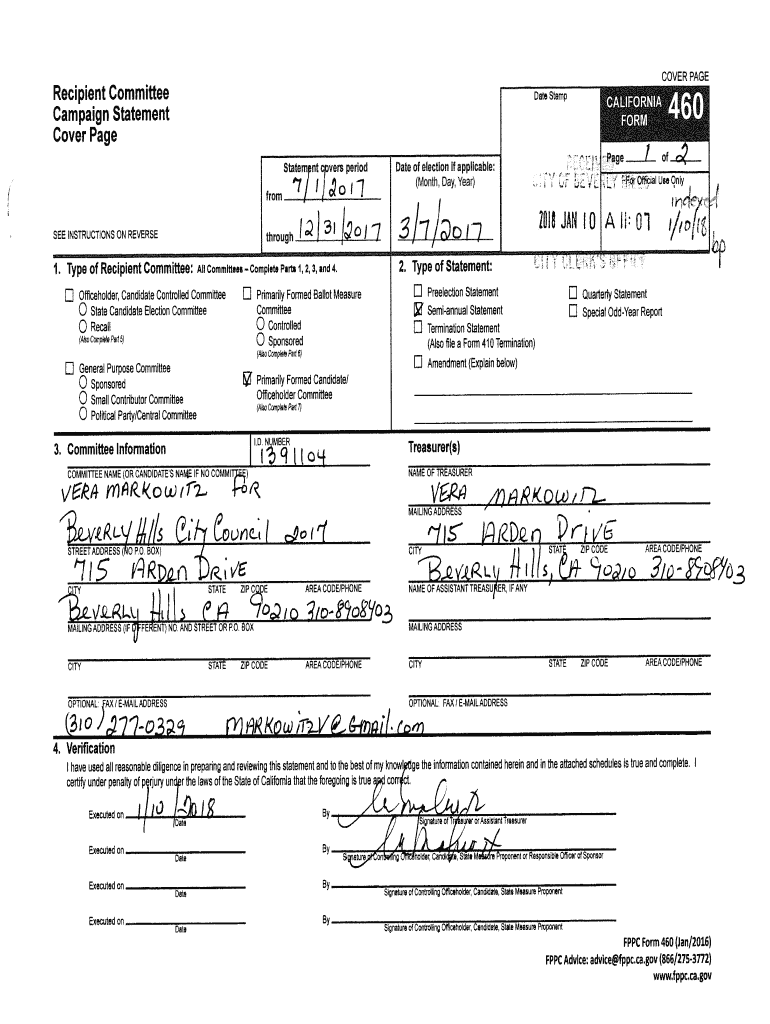 COVER PAGE
Recipient Committee
Campaign Statement
Cover Page
Date Stamp
CALIFORNIA
FORM 460
Statement covers period
from 7/1/2017
through 12/31/2017
Date of election if applicable:
(Month, Day, Year)
3/7/2017
Page 1 of 2
For Official Use Only
RECEIVED
CITY OF BEVERLY HILLS
2018 JAN 10 A 11: 07
CITY CLERK'S OFFICE
indexed
1/10/18
bp
SEE INSTRUCTIONS ON REVERSE
1. Type of Recipient Committee: All Committees – Complete Parts 1, 2, 3, and 4.
Officeholder, Candidate Controlled Committee
State Candidate Election Committee
Recall
(Also Complete Part 5)
General Purpose Committee
Sponsored
Small Contributor Committee
Political Party/Central Committee
Primarily Formed Ballot Measure
Committee
Controlled
Sponsored
(Also Complete Part 6)
Primarily Formed Candidate/
Officeholder Committee
(Also Complete Part 7)
2. Type of Statement:
Preelection Statement
Semi-annual Statement
Termination Statement
(Also file a Form 410 Termination)
Amendment (Explain below)
Quarterly Statement
Special Odd-Year Report
3. Committee Information
I.D. NUMBER
1391104
COMMITTEE NAME (OR CANDIDATE'S NAME IF NO COMMITTEE)
VERA MARKOWITZ FOR
BEVERLY Hills City Council 2017
STREET ADDRESS (NO P.O. BOX)
715 ARDen DRIVE
CITY STATE ZIP CODE AREA CODE/PHONE
BEVERLY Hills CA 90210 310-8908403
MAILING ADDRESS (IF DIFFERENT) NO. AND STREET OR P.O. BOX
CITY STATE ZIP CODE AREA CODE/PHONE
OPTIONAL: FAX / E-MAIL ADDRESS
(310) 277-0329 MARKOWITZV@Gmail.com
Treasurer(s)
NAME OF TREASURER
VERA MARKOWITZ
MAILING ADDRESS
715 ARDen DRIVE
CITY STATE ZIP CODE AREA CODE/PHONE
BEVERLY Hills, CA 90210 310-8908403
NAME OF ASSISTANT TREASURER, IF ANY
MAILING ADDRESS
CITY STATE ZIP CODE AREA CODE/PHONE
OPTIONAL: FAX / E-MAIL ADDRESS
4. Verification
I have used all reasonable diligence in preparing and reviewing this statement and to the best of my knowledge the information contained herein and in the attached schedules is true and complete. I
certify under penalty of perjury under the laws of the State of California that the foregoing is true and correct.
Executed on 1/10/2018
Date
By
Signature of Treasurer or Assistant Treasurer
Executed on
Date
By
Signature of Controlling Officeholder, Candidate, State Measure Proponent or Responsible Officer of Sponsor
Executed on
Date
By
Signature of Controlling Officeholder, Candidate, State Measure Proponent
Executed on
Date
By
Signature of Controlling Officeholder, Candidate, State Measure Proponent
FPPC Form 460 (Jan/2016)
FPPC Advice: advice@fppc.ca.gov (866/275-3772)
www.fppc.ca.gov